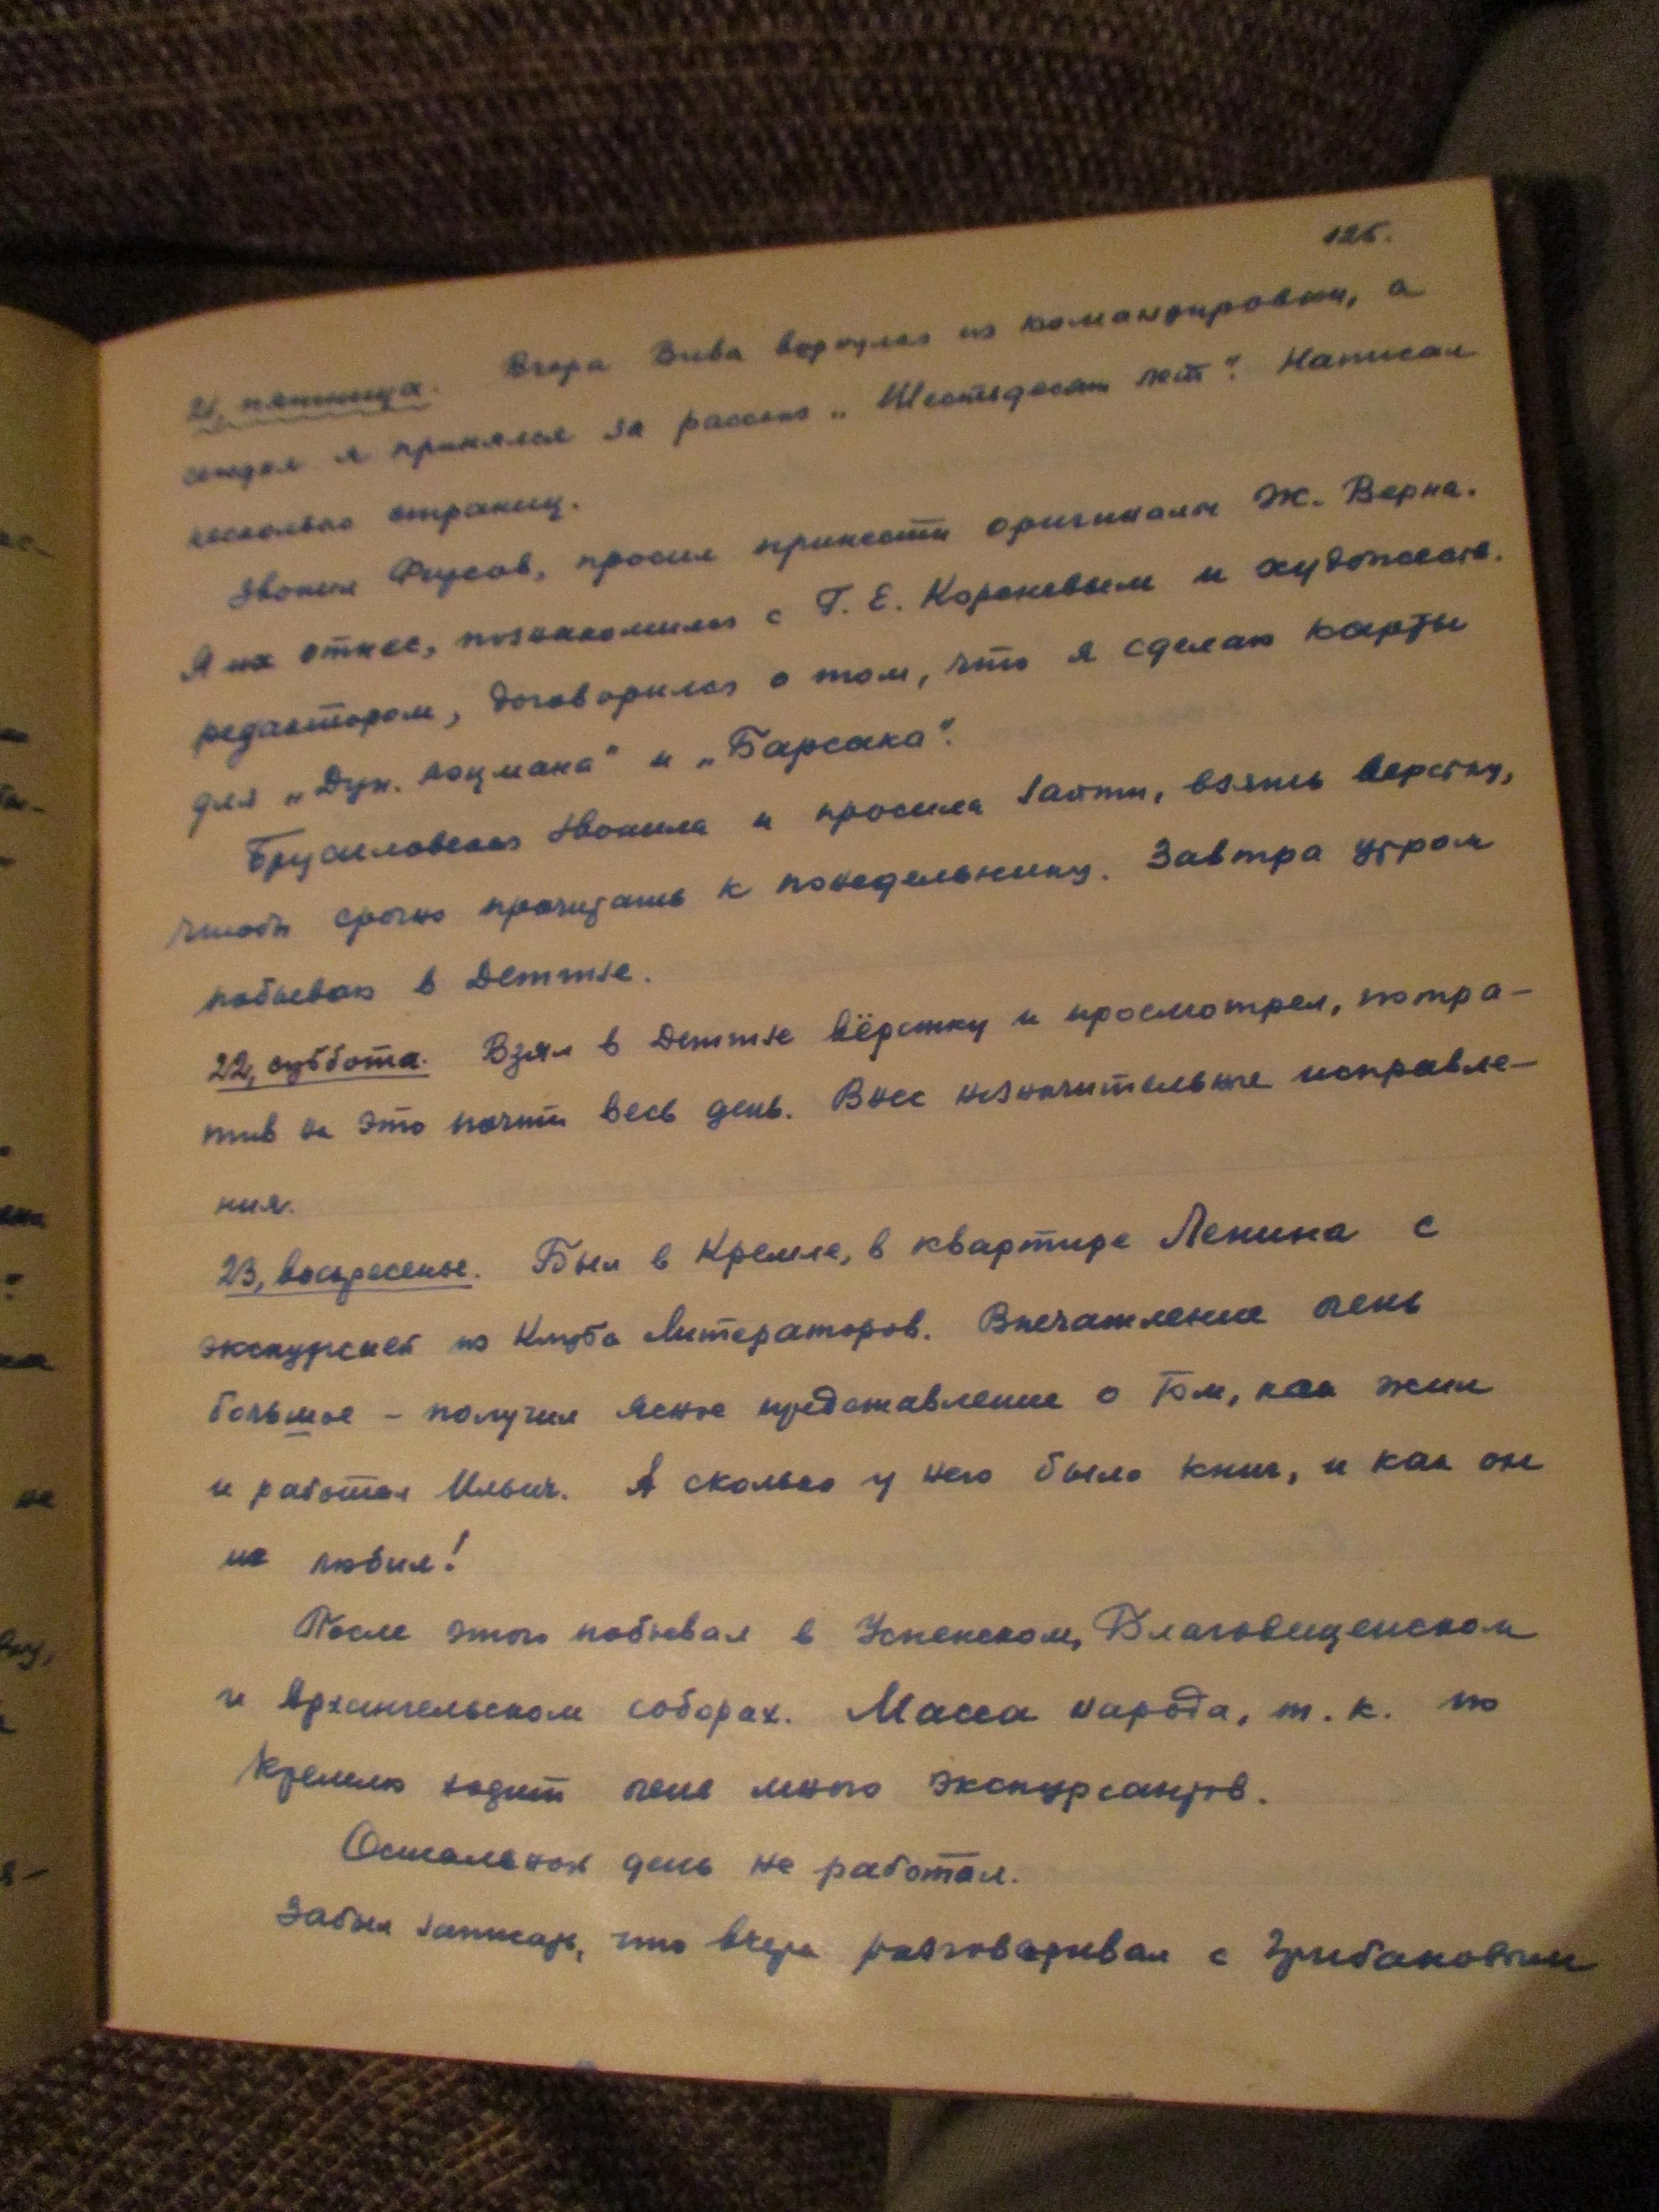 125.
21, пятница. Вчера Вива вернулся из командировки, а
сегодня я принялся за рассказ „Шестьдесят лет". Написал
несколько страниц.
Звонил Фирсов, просил принести оригиналы Ж. Верна.
Я их отнес, познакомился с Г. Е. Кореневым и художеств.
редактором, договорился о том, что я сделаю карты
для „Дун. лоцмана" и „Барсака".
Брусиловская звонила и просила зайти, взять верстку,
чтобы срочно прочитать к понедельнику. Завтра утром
побываю в Детгизе.
22, суббота. Взял в Детгизе вёрстку и просмотрел, потра-
тив на это почти весь день. Внес незначительные исправле-
ния.
23, воскресенье. Был в Кремле, в квартире Ленина с
экскурсией из Клуба Литераторов. Впечатление очень
большое - получил ясное представление о том, как жил
и работал Ильич. А сколько у него было книг, и как он
их любил!
После этого побывал в Успенском, Благовещенском
и Архангельском соборах. Масса народа, т. к. по
Кремлю ходит очень много экскурсантов.
Остальной день не работал.
Забыл записать, что вчера разговаривал с Грибановым